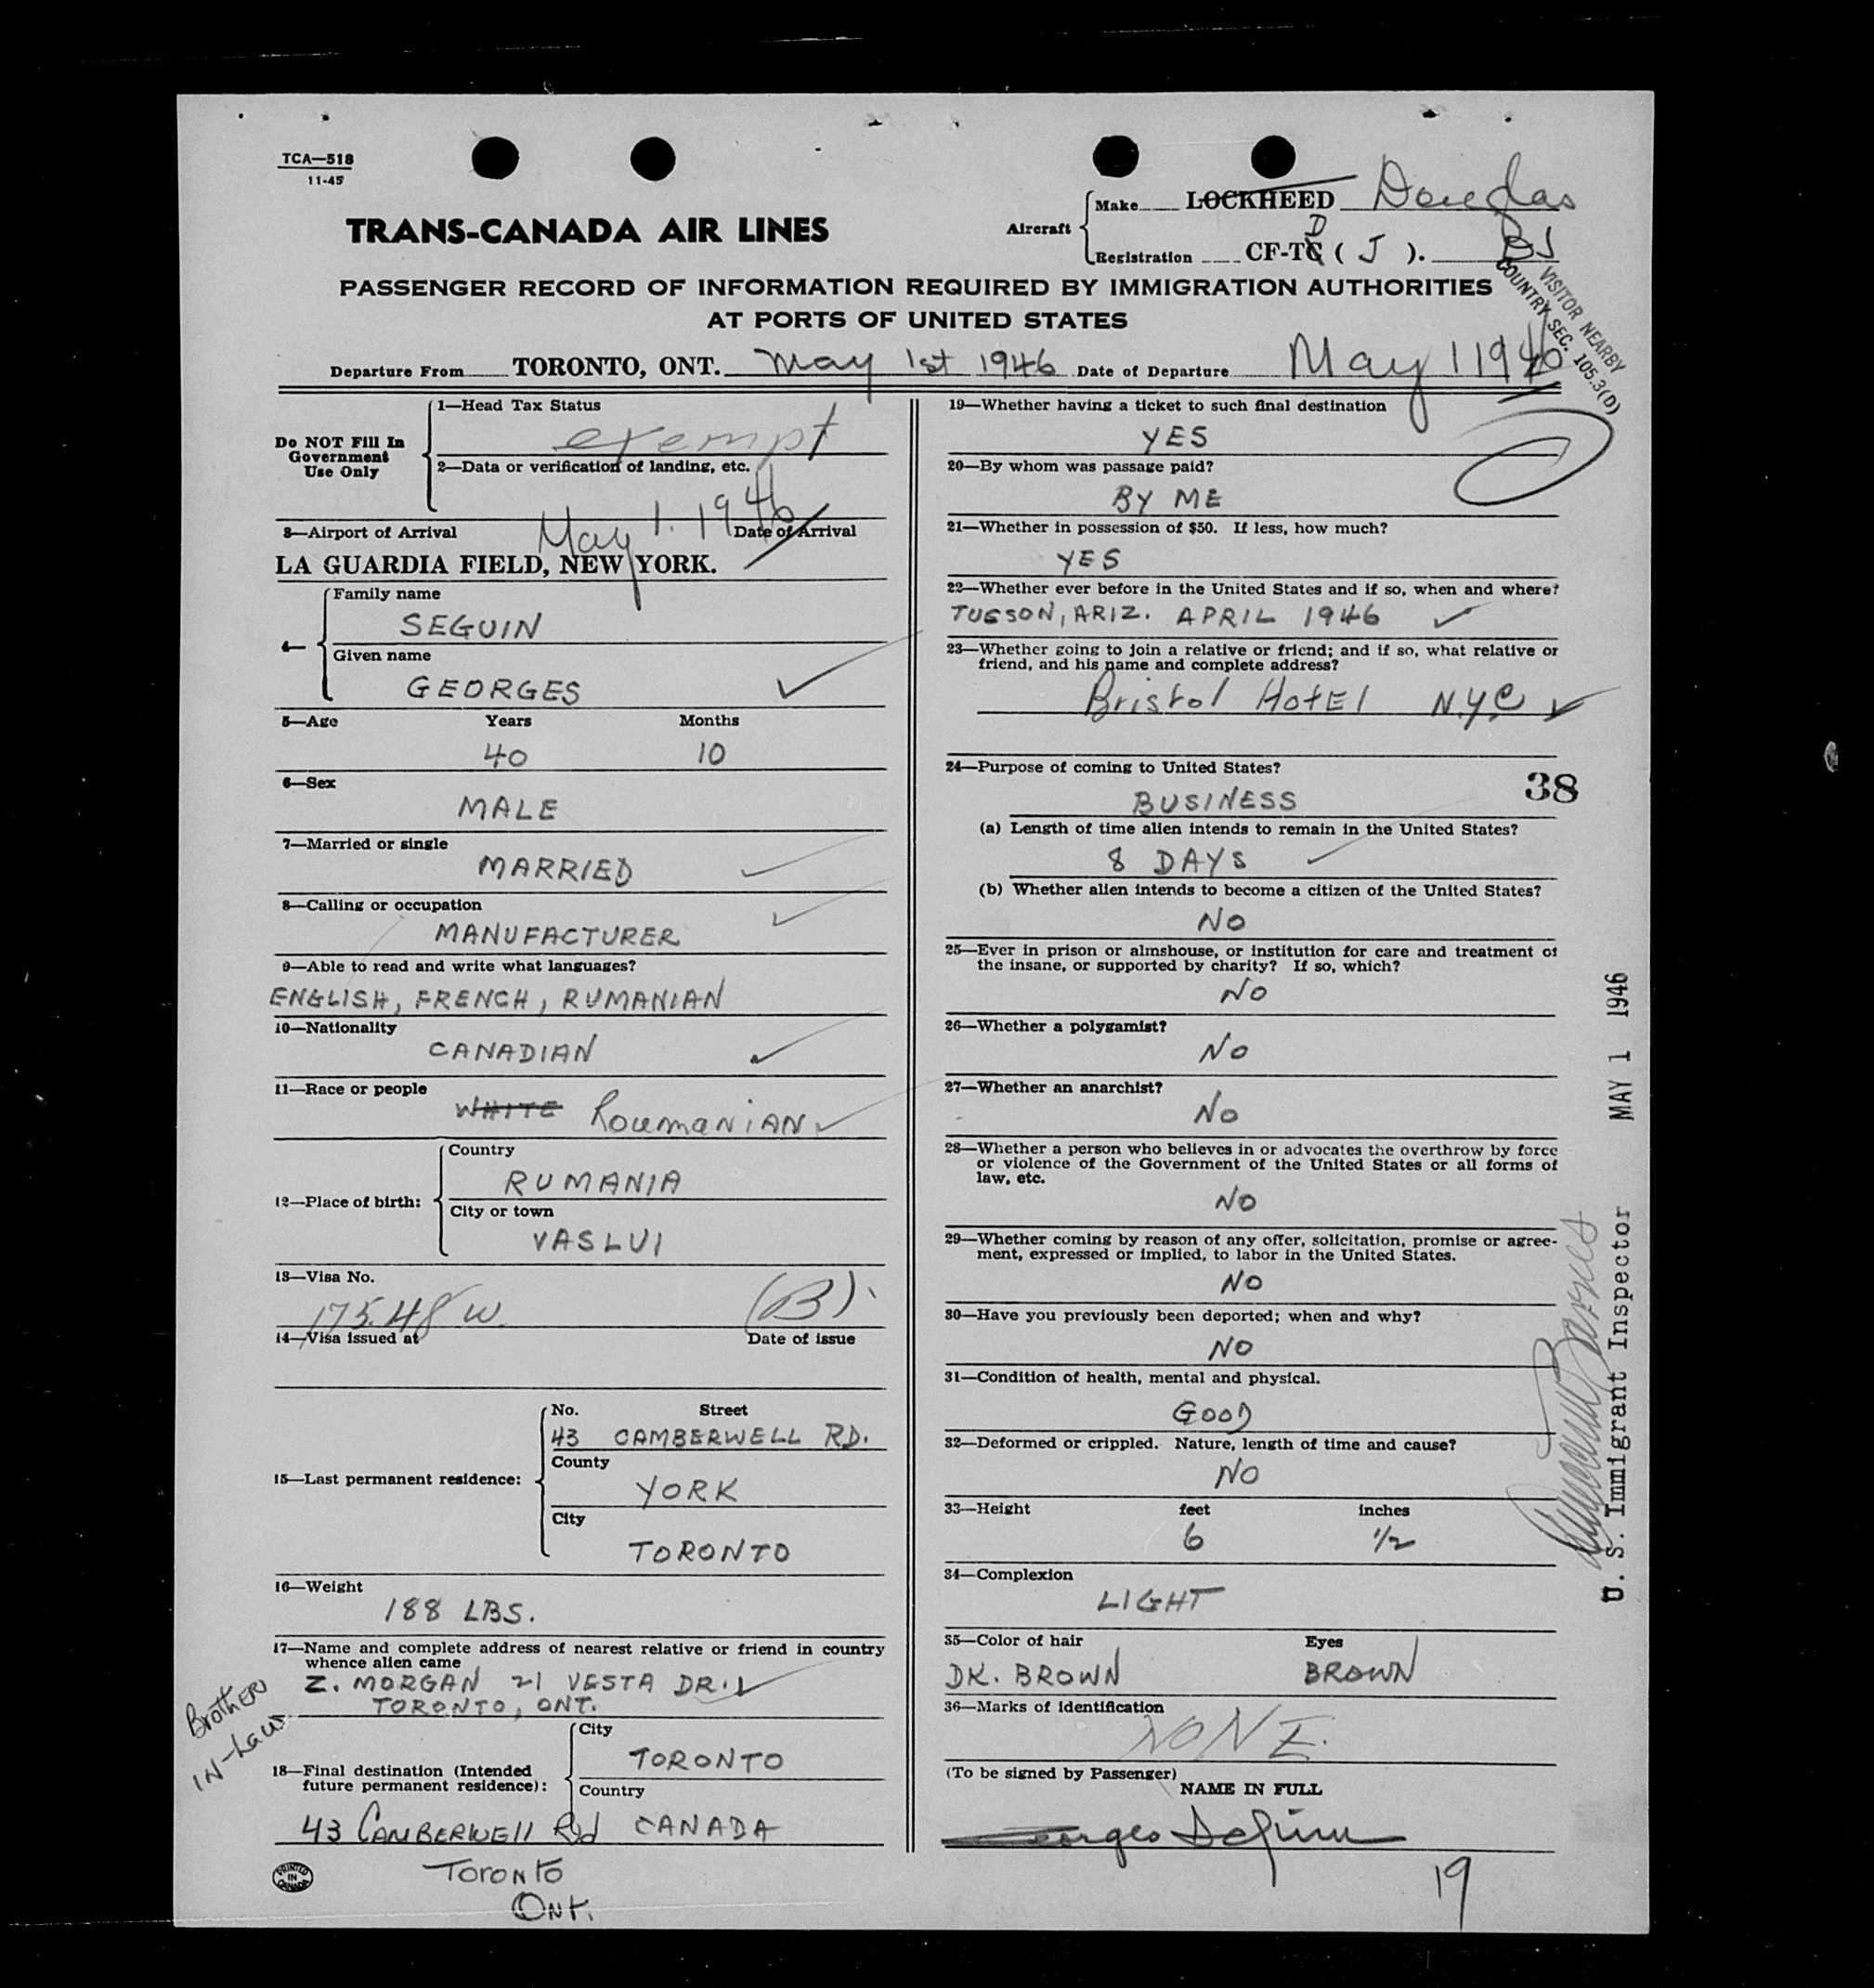 TCA—518
11-45
TRANS-CANADA AIR LINES
Aircraft
Make LOCKHEED Douglas
Registration CF-TC D ( J ). DJ
VISITOR NEARBY
COUNTRY SEC. 105.3(D)
PASSENGER RECORD OF INFORMATION REQUIRED BY IMMIGRATION AUTHORITIES
AT PORTS OF UNITED STATES
Departure From TORONTO, ONT. May 1st 1946 Date of Departure May 1 1946
Do NOT Fill In
Government
Use Only
1—Head Tax Status
exempt
2—Data or verification of landing, etc.
May 1. 1946
3—Airport of Arrival Date of Arrival
LA GUARDIA FIELD, NEW YORK.
4—
Family name
SEGUIN
Given name
GEORGES
5—Age Years Months
40 10
6—Sex
MALE
7—Married or single
MARRIED
8—Calling or occupation
MANUFACTURER
9—Able to read and write what languages?
ENGLISH, FRENCH, RUMANIAN
10—Nationality
CANADIAN
11—Race or people
WHITE RoumaniAN
12—Place of birth:
Country
RUMANIA
City or town
VASLUI
13—Visa No.
175.48 W. (B)
14—Visa issued at Date of issue
15—Last permanent residence:
No. Street
43 CAMBERWELL RD.
County
YORK
City
TORONTO
16—Weight
188 LBS.
17—Name and complete address of nearest relative or friend in country
whence alien came
Z. MORGAN 21 VESTA DR.
TORONTO, ONT.
Brother
IN-Law
18—Final destination (Intended
future permanent residence):
City
TORONTO
Country
43 CAMBERWEll Rd CANADA
Toronto
Ont.
PRINTED
IN
CANADA
19—Whether having a ticket to such final destination
YES
20—By whom was passage paid?
BY ME
21—Whether in possession of $50. If less, how much?
YES
22—Whether ever before in the United States and if so, when and where?
TUCSON, ARIZ. APRIL 1946
23—Whether going to join a relative or friend; and if so, what relative or
friend, and his name and complete address?
Bristol HotEl N.Y.C
24—Purpose of coming to United States?
BUSINESS
38
(a) Length of time alien intends to remain in the United States?
8 DAYS
(b) Whether alien intends to become a citizen of the United States?
NO
25—Ever in prison or almshouse, or institution for care and treatment of
the insane, or supported by charity? If so, which?
NO
26—Whether a polygamist?
NO
27—Whether an anarchist?
NO
28—Whether a person who believes in or advocates the overthrow by force
or violence of the Government of the United States or all forms of
law, etc.
NO
29—Whether coming by reason of any offer, solicitation, promise or agree-
ment, expressed or implied, to labor in the United States.
NO
30—Have you previously been deported; when and why?
NO
31—Condition of health, mental and physical.
GOOD
32—Deformed or crippled. Nature, length of time and cause?
NO
33—Height feet inches
6 1/2
34—Complexion
LIGHT
35—Color of hair Eyes
DK. BROWN BROWN
36—Marks of identification
NONE.
(To be signed by Passenger)
NAME IN FULL
Georges Seguin
19
MAY 1 1946
U. S. Immigrant Inspector